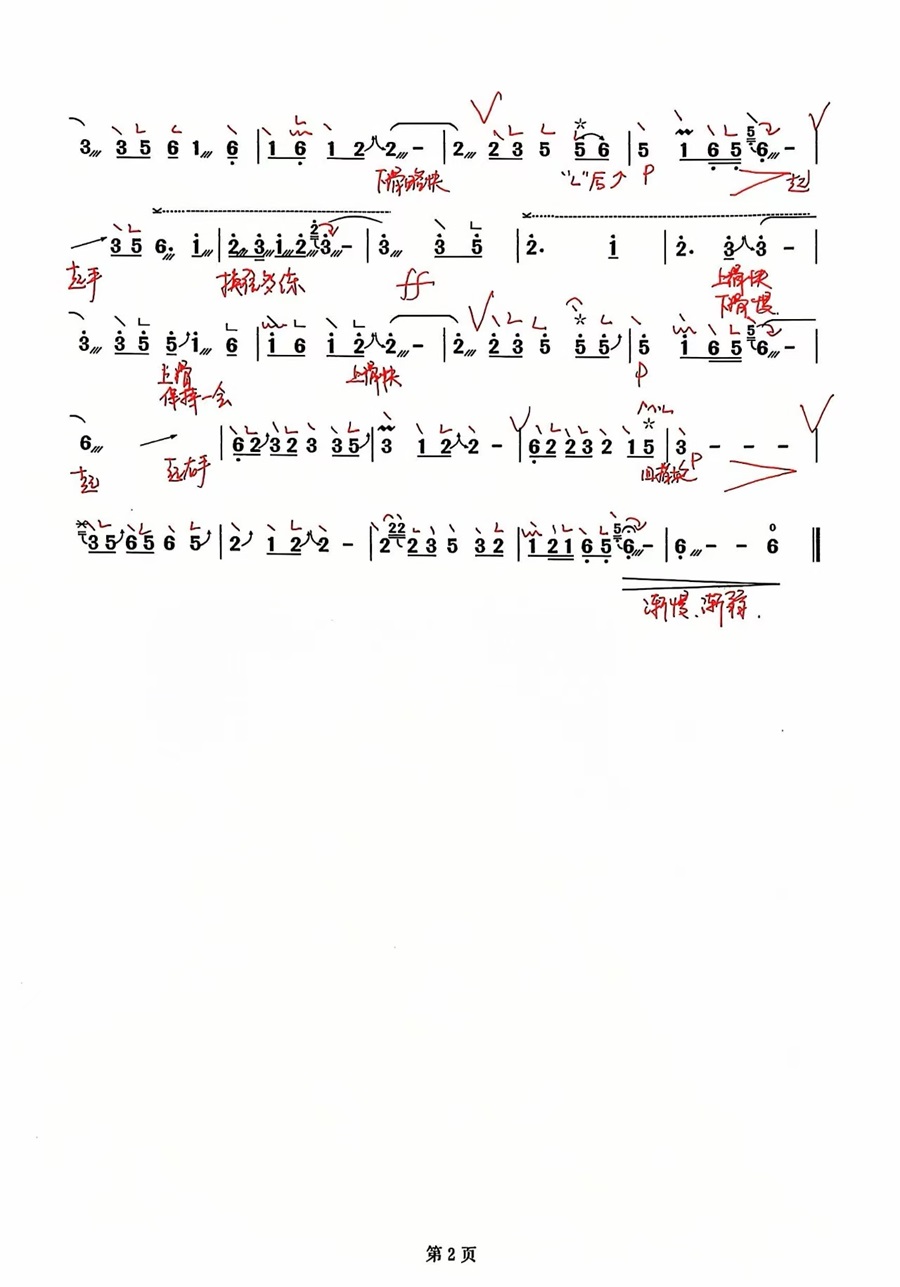 3 3 5 6 1 6 | 1 6 1 2 2 - | 2 2 3 5 5 6 | 5 1 6 5 5 6 - |
下滑略快 "L"后 P 起
3 5 6. 1 | 2 3 1 2 2 3 - | 3 3 5 | 2. 1 | 2. 3 3 - |
起手 ff 上滑快
下滑慢
3 3 5 5 1 6 | 1 6 1 2 2 - | 2 2 3 5 5 5 | 5 1 6 5 5 6 - |
上滑 上滑快 P
保持一会
6 | 6 2 3 2 3 3 5 | 3 1 2 2 - | 6 2 2 3 2 1 5 | 3 - - - |
起 起右手 P
3 5 6 5 6 5 | 2 1 2 2 - | 2 2 2 2 3 5 3 2 | 1 2 1 6 5 5 6 - | 6 - - 6
渐慢、渐弱.
第 2 页